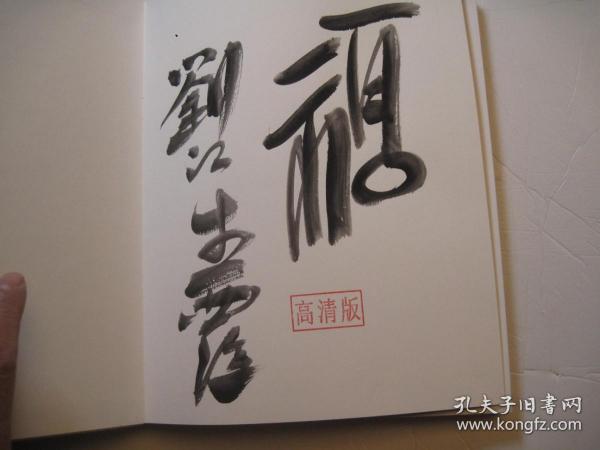 福
劉江
高清版
孔夫子旧书网
www.kongfz.com